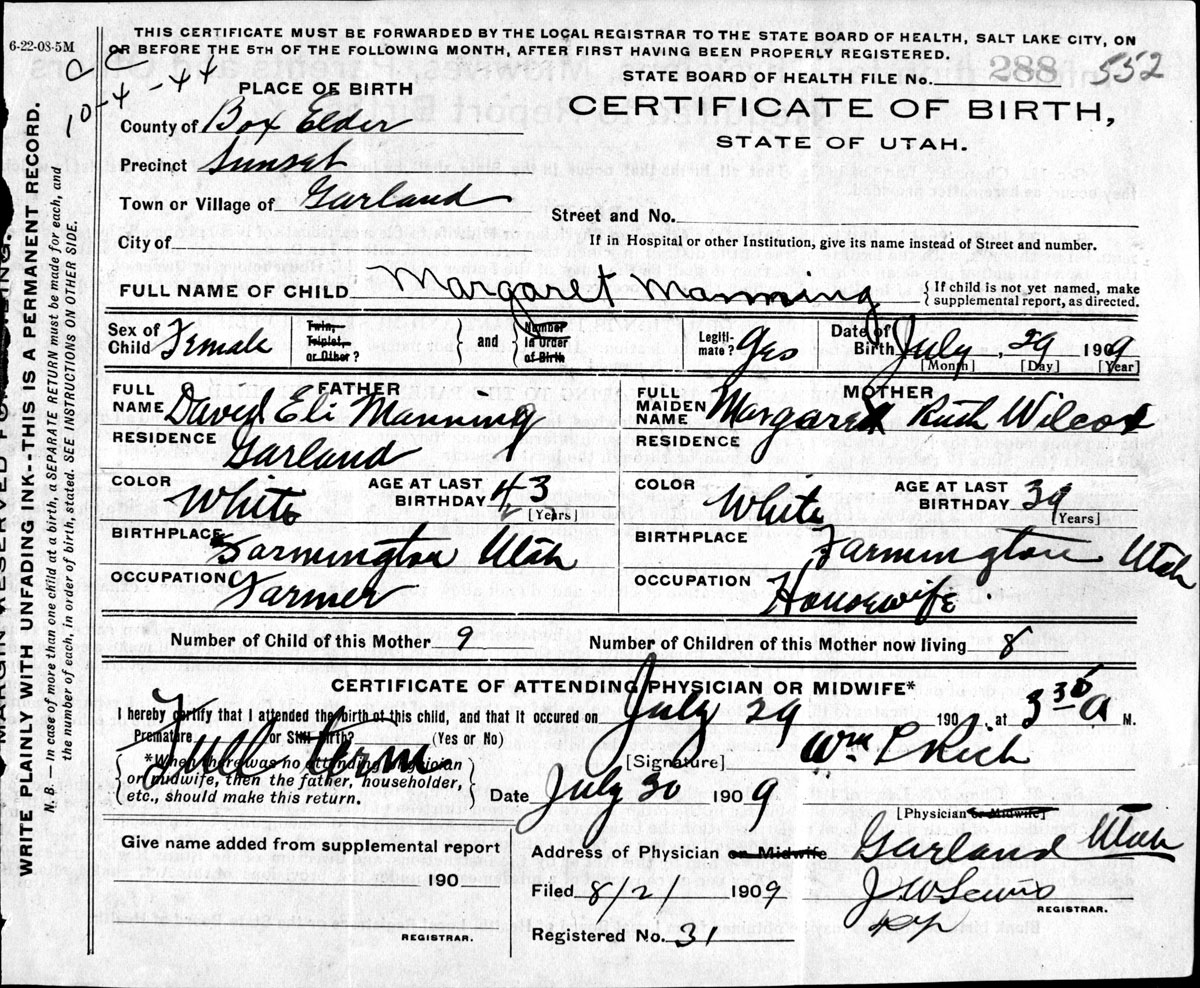 6-22-08-5M
THIS CERTIFICATE MUST BE FORWARDED BY THE LOCAL REGISTRAR TO THE STATE BOARD OF HEALTH, SALT LAKE CITY, ON
OR BEFORE THE 5TH OF THE FOLLOWING MONTH, AFTER FIRST HAVING BEEN PROPERLY REGISTERED.
CC
10-4-44
STATE BOARD OF HEALTH FILE No. 288 552
PLACE OF BIRTH
CERTIFICATE OF BIRTH,
STATE OF UTAH.
County of Box Elder
Precinct Sunset
Town or Village of Garland
Street and No.
City of
If in Hospital or other Institution, give its name instead of Street and number.
FULL NAME OF CHILD Margaret Manning { If child is not yet named, make
supplemental report, as directed.
Sex of Child Female Twin, Triplet, or Other? } and { Number in Order of Birth Legiti-mate? Yes Date of Birth July, 29 1909
[Month] [Day] [Year]
FATHER
FULL NAME David Eli Manning
RESIDENCE Garland
COLOR White AGE AT LAST BIRTHDAY 43
[Years]
BIRTHPLACE Farmington Utah
OCCUPATION Farmer
MOTHER
FULL MAIDEN NAME Margaret Ruth Wilcox
RESIDENCE
COLOR White AGE AT LAST BIRTHDAY 39
[Years]
BIRTHPLACE Farmington Utah
OCCUPATION Housewife
Number of Child of this Mother 9 Number of Children of this Mother now living 8
CERTIFICATE OF ATTENDING PHYSICIAN OR MIDWIFE*
I hereby certify that I attended the birth of this child, and that it occured on July 29 1909, at 3 30 A M.
Premature or Still Birth? (Yes or No)
Full term
{ *When there was no attending physician
or midwife, then the father, householder,
etc., should make this return. }
[Signature] Wm P Rich
Date July 30 1909
[Physician or Midwife]
Give name added from supplemental report
190
REGISTRAR.
Address of Physician or Midwife Garland Utah
Filed 8/2/ 1909 J W Lewis
REGISTRAR.
Registered No. 31
WRITE PLAINLY WITH UNFADING INK--THIS IS A PERMANENT RECORD.
N. B. — In case of more than one child at a birth, a SEPARATE RETURN must be made for each, and
the number of each, in order of birth, stated. SEE INSTRUCTIONS ON OTHER SIDE.